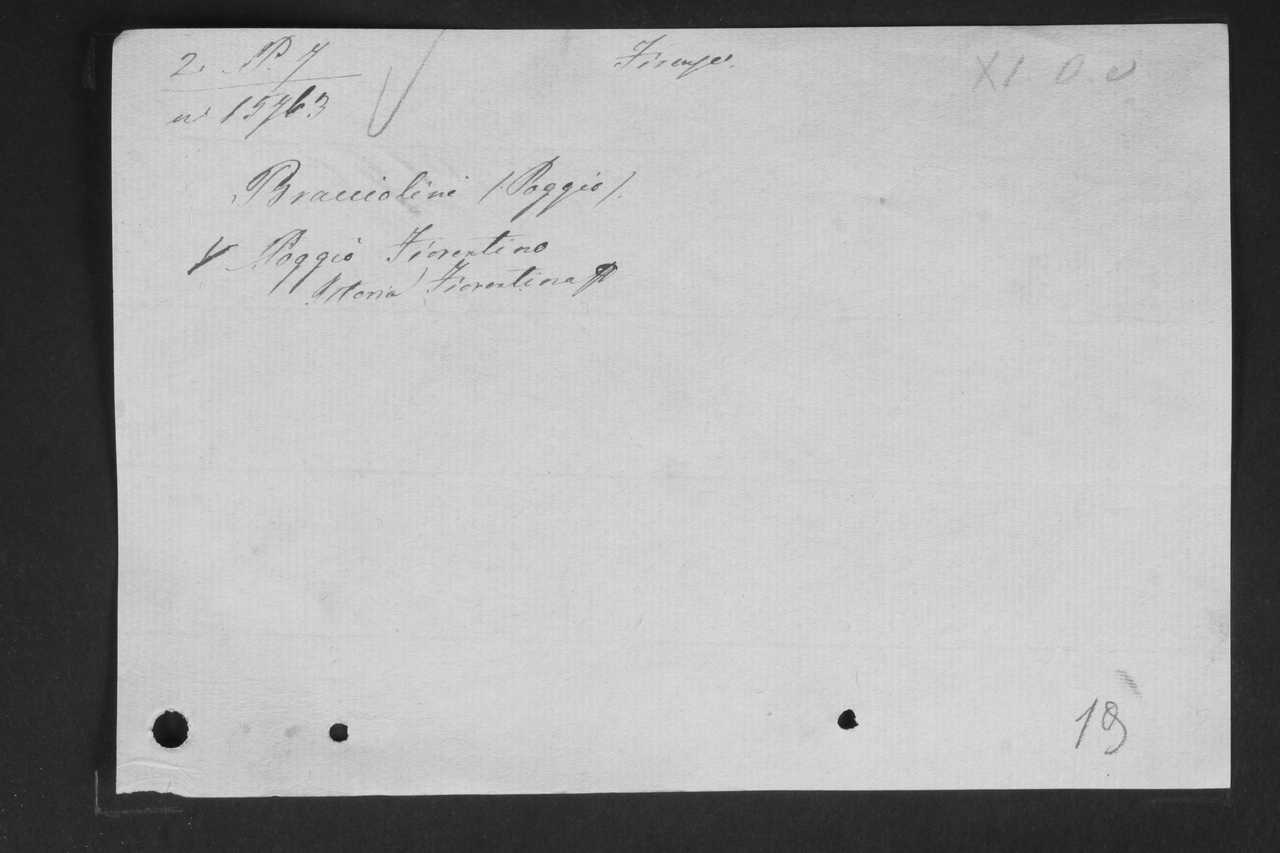 2. P. 7
Firenze.
XI. D. e
nº 15763
Bracciolini (Poggio).
V Poggio Fiorentino
Istoria Fiorentina
19